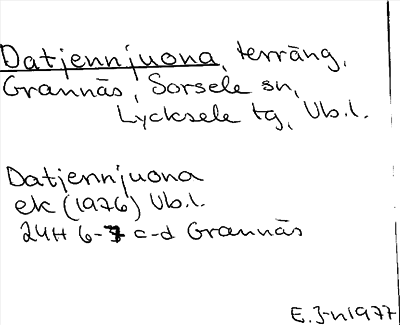 Datjennjuona, terräng,
Grannäs, Sorsele sn,
Lycksele tg, Vb.l.
Datjennjuona
ek (1976) Vb.l.
24H 6-7 c-d Grannäs
E.J-n 1977